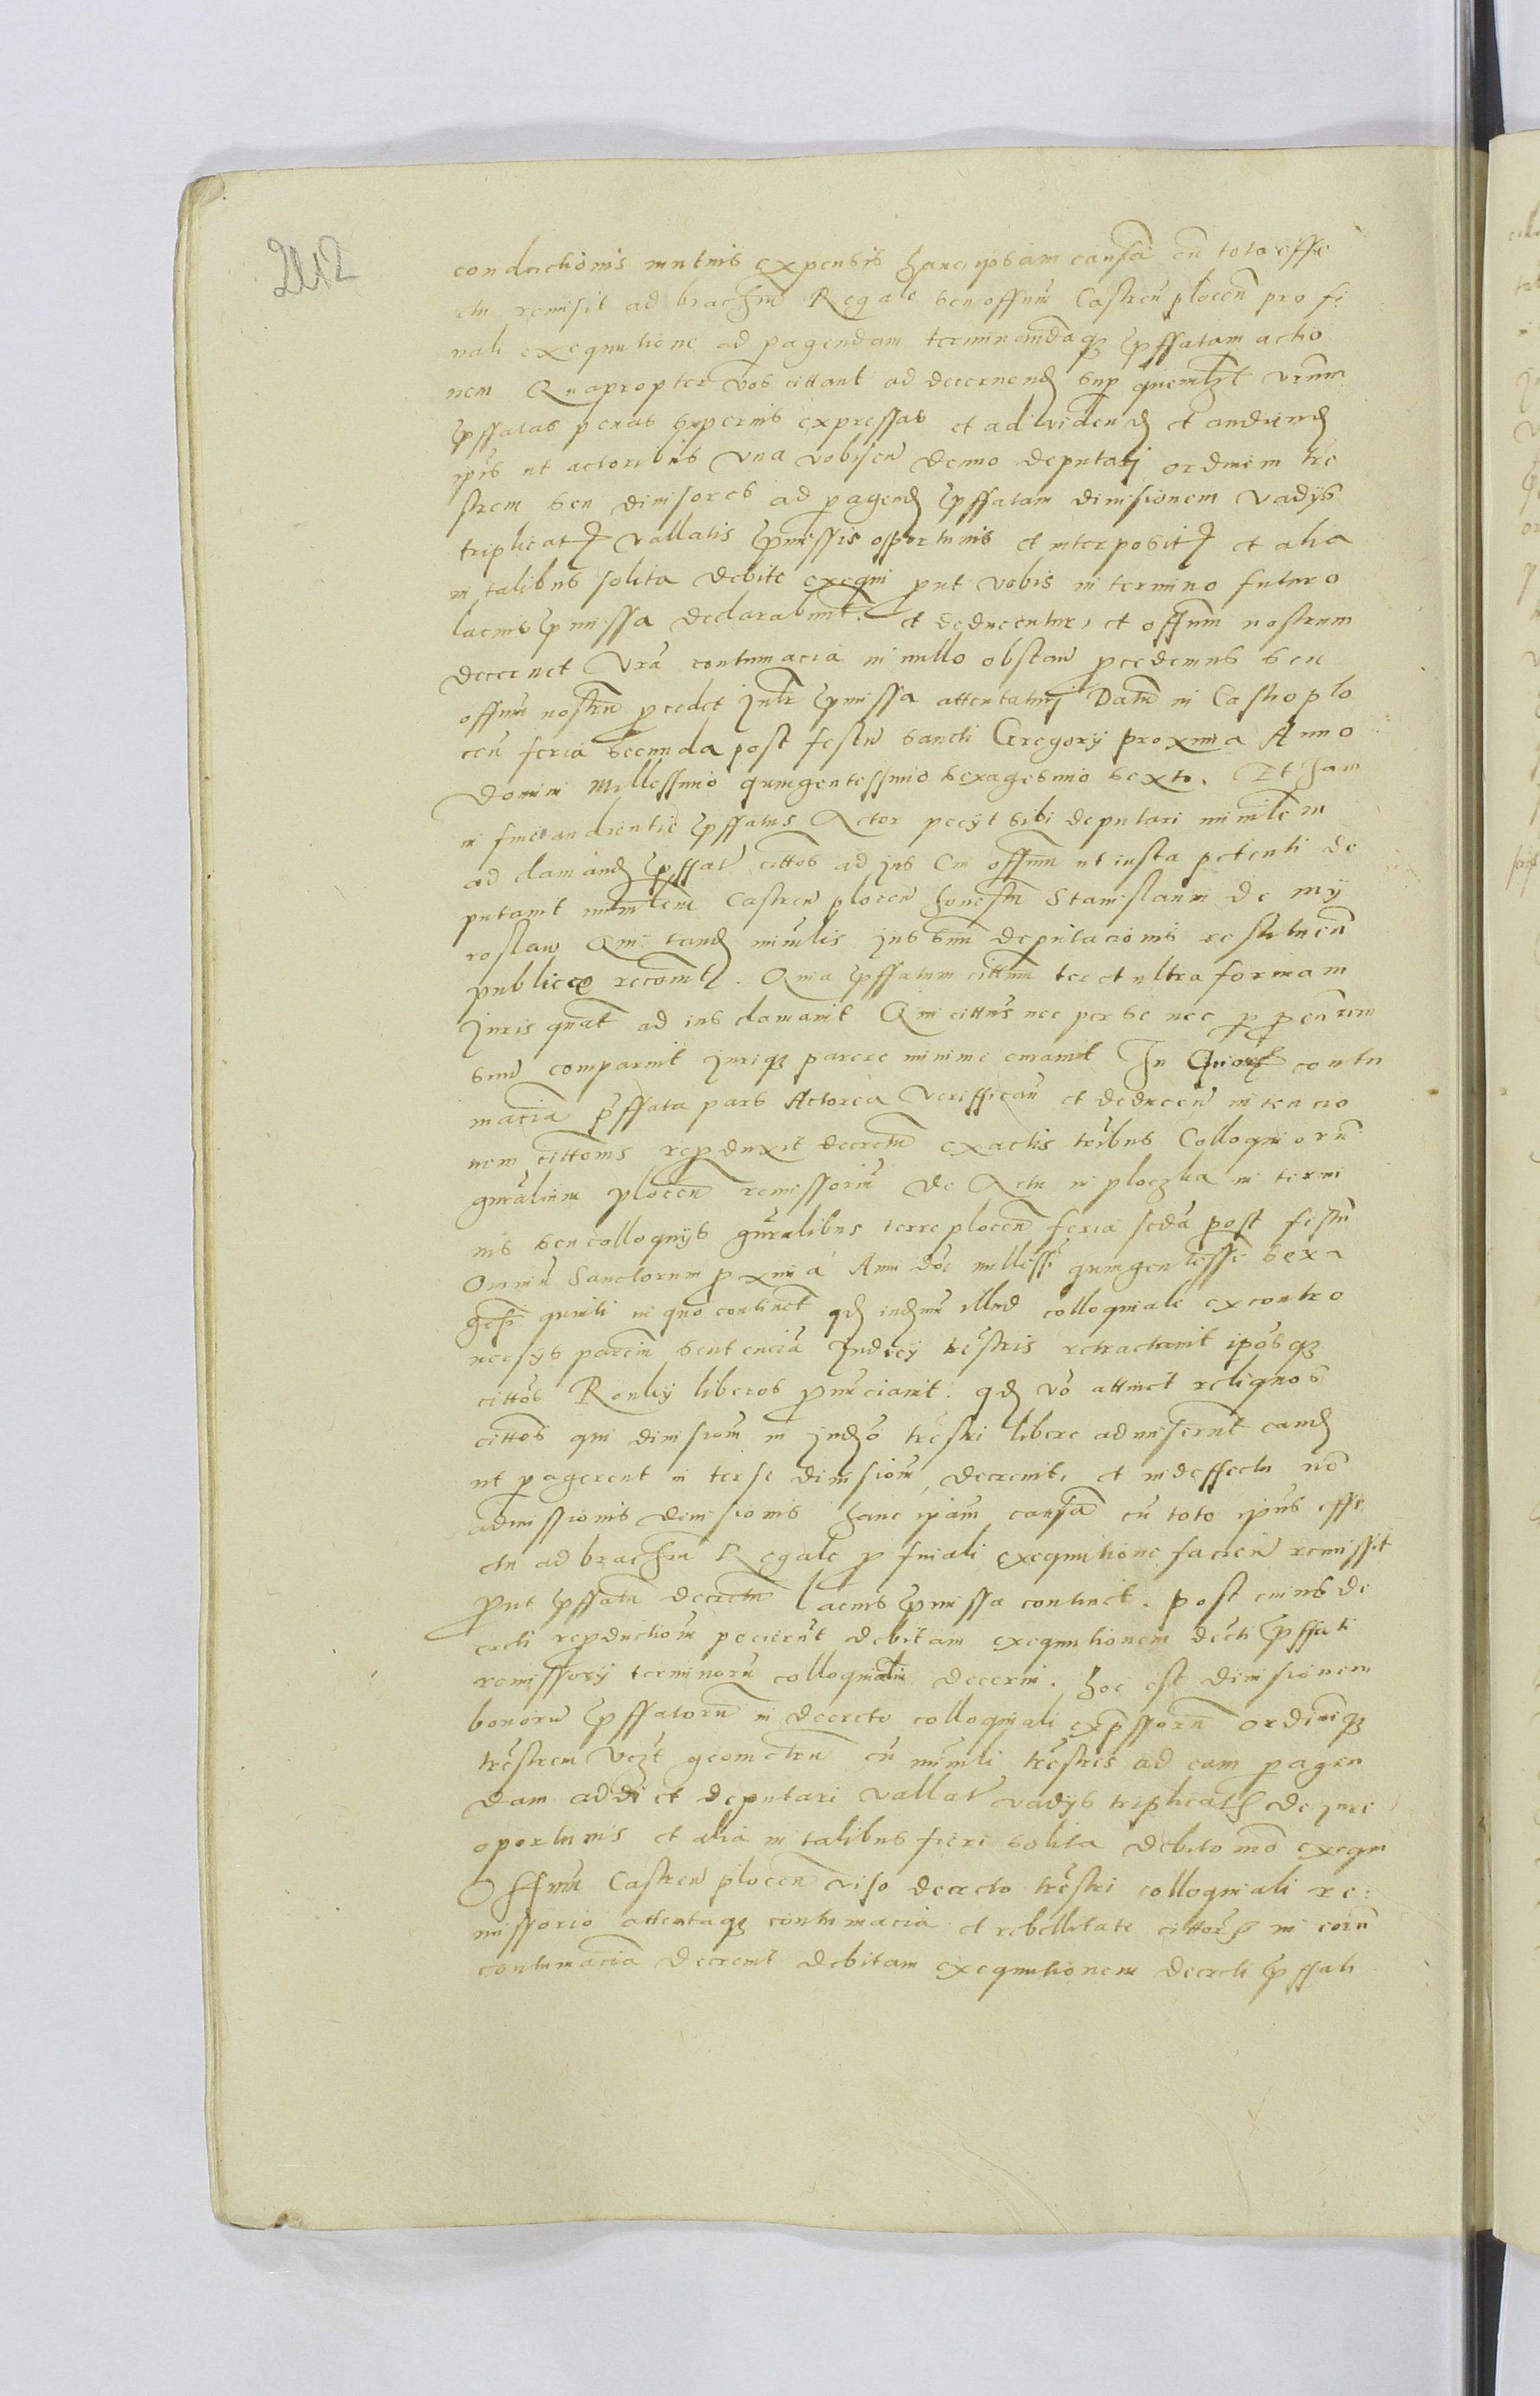 212
conductionis mutuis expensis hanc ipsam causã cũ toto effe
ctu remisit ad brachiũ Regale seu offium Castreñ ploceñ pro fi
nali exequutione ad pagendam terminandãq pffatam actio
nem Quapropter vos cittant ad decernend sup quemlzt vrũm
pffatas penas superius expressas et ad videnđ et audienđ
ipis ut actoribus vna vobiscũ denuo deputari ordinem tre
strem seu divisores ad pagend pffatam divisionem vadys
triplicat vallatis pmissis opportunis et interposit et alia
in talibus solita debite exequi put vobis in termino futuro
lacius pmissa declarabunt. et deducentur, et offium nostrum
decernet Vrã contumacia in nullo obstañ pcedemus seu
offium nostrũ pcedet Iuxta pmissa attentatur Datũ in Castro plo
ceñ feria secunda post festũ sancti Gregory proxima Anno
Domini Millessimo quingentessimo sexagesimo sexto. Et Iam
in fine audientie pffatus Actor pecyt sibi deputari minĩlem
ad clamand pffat cittos ad ius Cui offium ut iusta petenti de
putavit minĩlem Castreñ ploceñ honestũ Stanislaum de my
roslaw Qui tand minĩlis iussum deputacionis restitueñ
publice recovit. Quia pffatum cittum ter et ultra formam
Iuris quat ad ius clamavit Qui cittus nec per se nec p pcãrem
suũ comparuit Iuriq parere minime curavit In Quior contu
macia pffata pars Actorea veriffi­cañ et deduceñ intencio
nem cittonis repduxit decretũ ex actis tribus Colloquiorũ
gnralium ploceñ remissoriũ de Actu in ploczko in termi
nis seu colloquys gnralibus terre ploceñ feria scda post festũ
Omniũ Sanctorum pxima Anni dni millessi quingentessi sexa
gesi quinti in quo continet qd iudium illud colloquiale ex contro
versys parcium sentenciã Iudicy trestris retractavit iposq
cittos Ronky liberos pnunciavit. qd vo attinet reliquos
cittos qui divisionẽ in iudio trestri libere admiserunt eand
ut pagerent inter se divisionẽ, decrevit, et in deffectu nõ
admissionis divisionis hanc ipam causã cũ toto ipius effe
ctu ad brachiũ Regale p finali exequutione facieñ remissit
put pffatũ decretũ lacius pmissa continet. post cuius de
creti repductionẽ pecierũt debitam exequutionem decti pffati
remissory terminorũ colloquialiũ decerni. hoc est divisionem
bonorũ pffatorũ in decreto colloquiali expssorũ ordineq
trestrem vezt geometrũ cũ minĩli trestris ad eam pagen
dam addi et deputari vallat vadys triplicat de iure
oportunis et alia in talibus fieri solita debito mõ exequi
Offium Castreñ ploceñ viso decreto trestri colloquiali re:
missorio attentaq contumacia et rebellitate cittor in eorũ
contumaciã decrevit debitam exequutionem decreti pffati